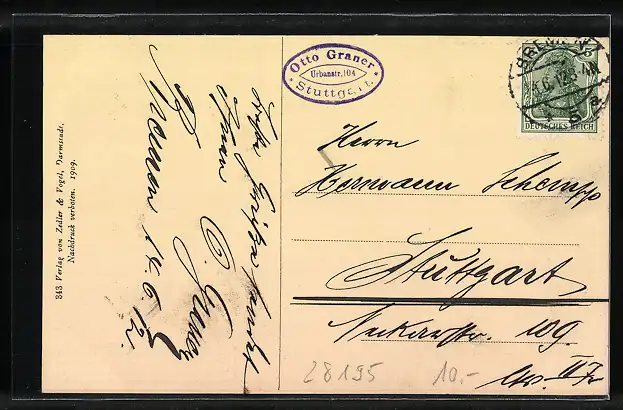 Otto Graner
Urbanstr. 104
Stuttgart.
BREMEN
DEUTSCHES REICH
Herrn
Hermann Schempp
Stuttgart
Neckarstr. 109.
Ihnen
O. Graner
Bremen 14.6.12.
343 Verlag von Zedler & Vogel, Darmstadt.
Nachdruck verboten. 1909.
28195
10.-